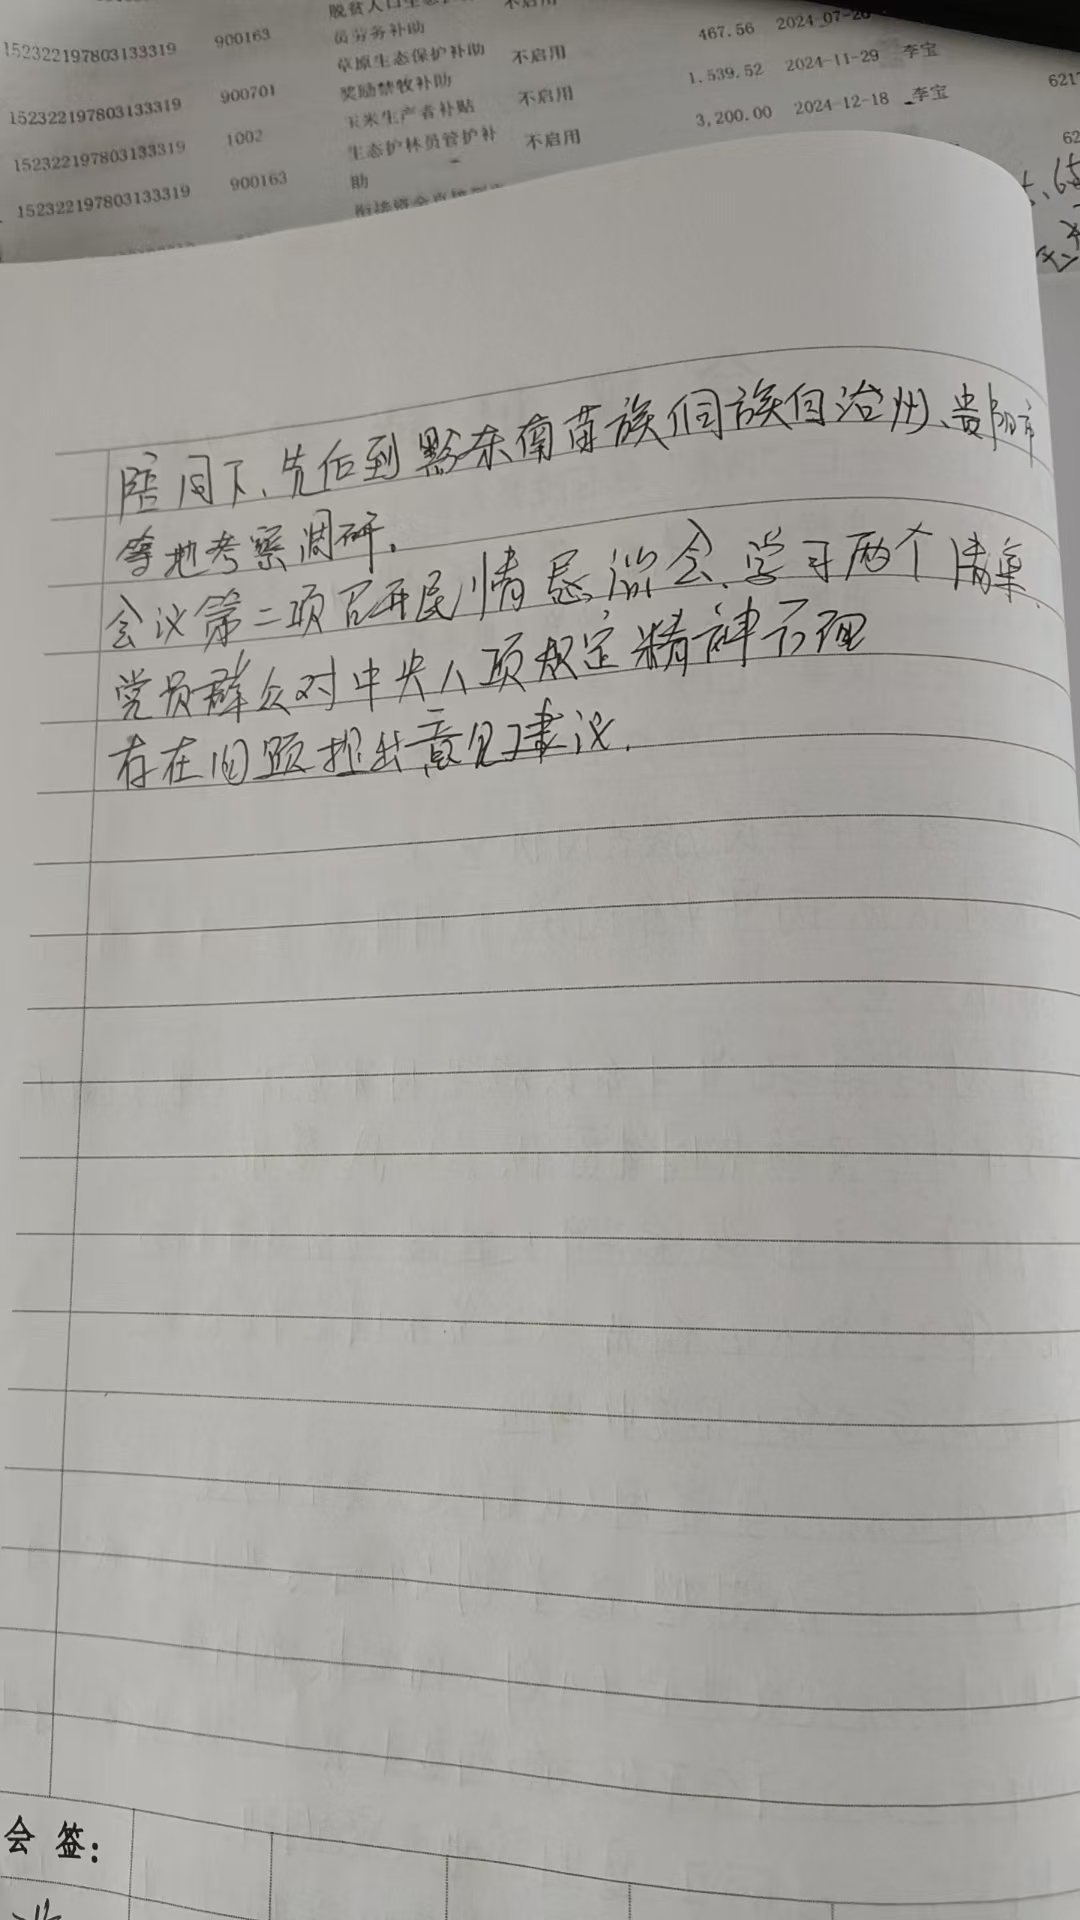 脱贫人口生态
不启用
152322197803133319 900163 员劳务补助 467.56 2024-07-26
草原生态保护补助 不启用
152322197803133319 900701 奖励禁牧补助 1,539.52 2024-11-29 李宝
152322197803133319 1002 玉米生产者补贴 不启用 3,200.00 2024-12-18 李宝
6217
152322197803133319 900163 生态护林员管护补 不启用
助
62
陪同下、先后到黔东南苗族侗族自治州、贵阳市
等地考察调研.
会议第二项召开民情恳谈会、学习两个清单、
党员群众对中央八项规定精神方面
存在问题提出意见建议.
会 签: